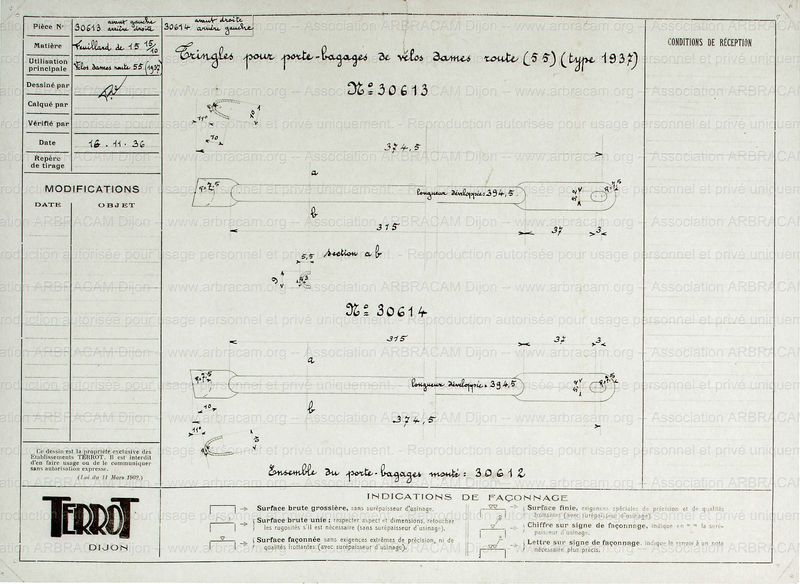 Pièce Nº 30613 avant gauche arrière droite 30614 avant droite arrière gauche
Matière Feuillard de 15 15/10
Utilisation principale Vélos dames route 55 (1937)
Dessiné par
Calqué par
Vérifié par
Date 16.11.36
Repère de tirage
MODIFICATIONS
DATE OBJET
Tringles pour porte-bagages de vélos dames route (55) (type 1937)
CONDITIONS DE RÉCEPTION
Nº 30613
11°
10
374,5
a
longueur développée: 394,5
b
315 37 3
5,5 section a b
9
Nº 30614
315 37 3
a
longueur développée: 394,5
10 b
11° 374,5
Ensemble du porte-bagages monté: 30612
Ce dessin est la propriété exclusive des
Etablissements TERROT. Il est interdit
d'en faire usage ou de le communiquer
sans autorisation expresse.
(Loi du 11 Mars 1902.)
TERROT
DIJON
INDICATIONS DE FAÇONNAGE
Surface brute grossière, sans surépaisseur d'usinage.
Surface brute unie; respecter aspect et dimensions, retoucher
les rugosités s'il est nécessaire (sans surépaisseur d'usinage).
Surface façonnée sans exigences extrêmes de précision, ni de
qualités frottantes (avec surépaisseur d'usinage).
Surface finie, exigences spéciales de précision et de qualités
frottantes (avec surépaisseur d'usinage).
Chiffre sur signe de façonnage, indique en m/m la surépaisseur d'usinage.
Lettre sur signe de façonnage, indique le renvoi à une note
nécessaire plus précis.
Association ARBRACAM Dijon – www.arbracam.org
Reproduction autorisée pour usage personnel et privé uniquement.